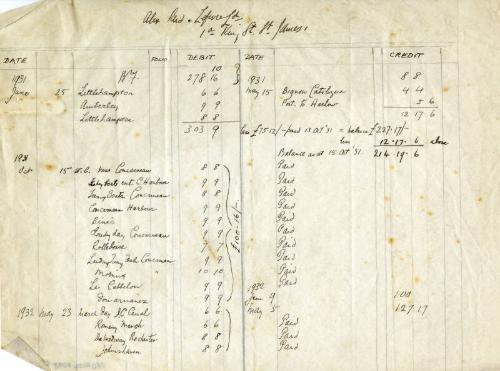 Alex Reid & Lefevre Ld
1A King St. St. James's
DATE FOLIO DEBIT DATE CREDIT
10 9
1931 W/F 278 16 1931 8 8
June 25 Littlehampton 6 6 May 15 Bignou Catalogue 4 4
Amberley 9 9 Port. to Harlow 5 6
Littlehampton 8 8 12 17 6
303 9 less £75.12/- paid 13 Oct '31 = balance £227.17/-
less 12.17.6 above
Balance as at 15 Oct '31 214.19.6
1931
Oct 15 W.C. Concarneau 8 8 Paid
C. Harbour 9 9 Paid
Boats Concarneau 8 8 Paid
Concarneau Harbour 9 9 Paid
9 9 Paid
Cloudy day Concarneau 9 9 Paid
Rolleboise 7 7 Paid
Fish Concarneau 9 9 Paid
Morning " 10 10 Paid
Le Cabellou 9 9 Paid
Douarnenez 9 9 1932
£100.16/-
Jan 9 100
1932 May 23 March Day N Canal 6 6 May 5 127.17
Romney Marsh 6 6 Paid
Rochester 8 8 Paid
Johnshaven 8 8 Paid